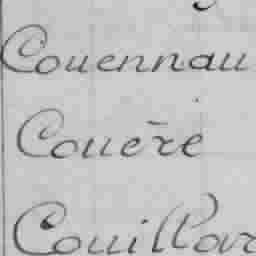 Couennau
Couëré
Couillar